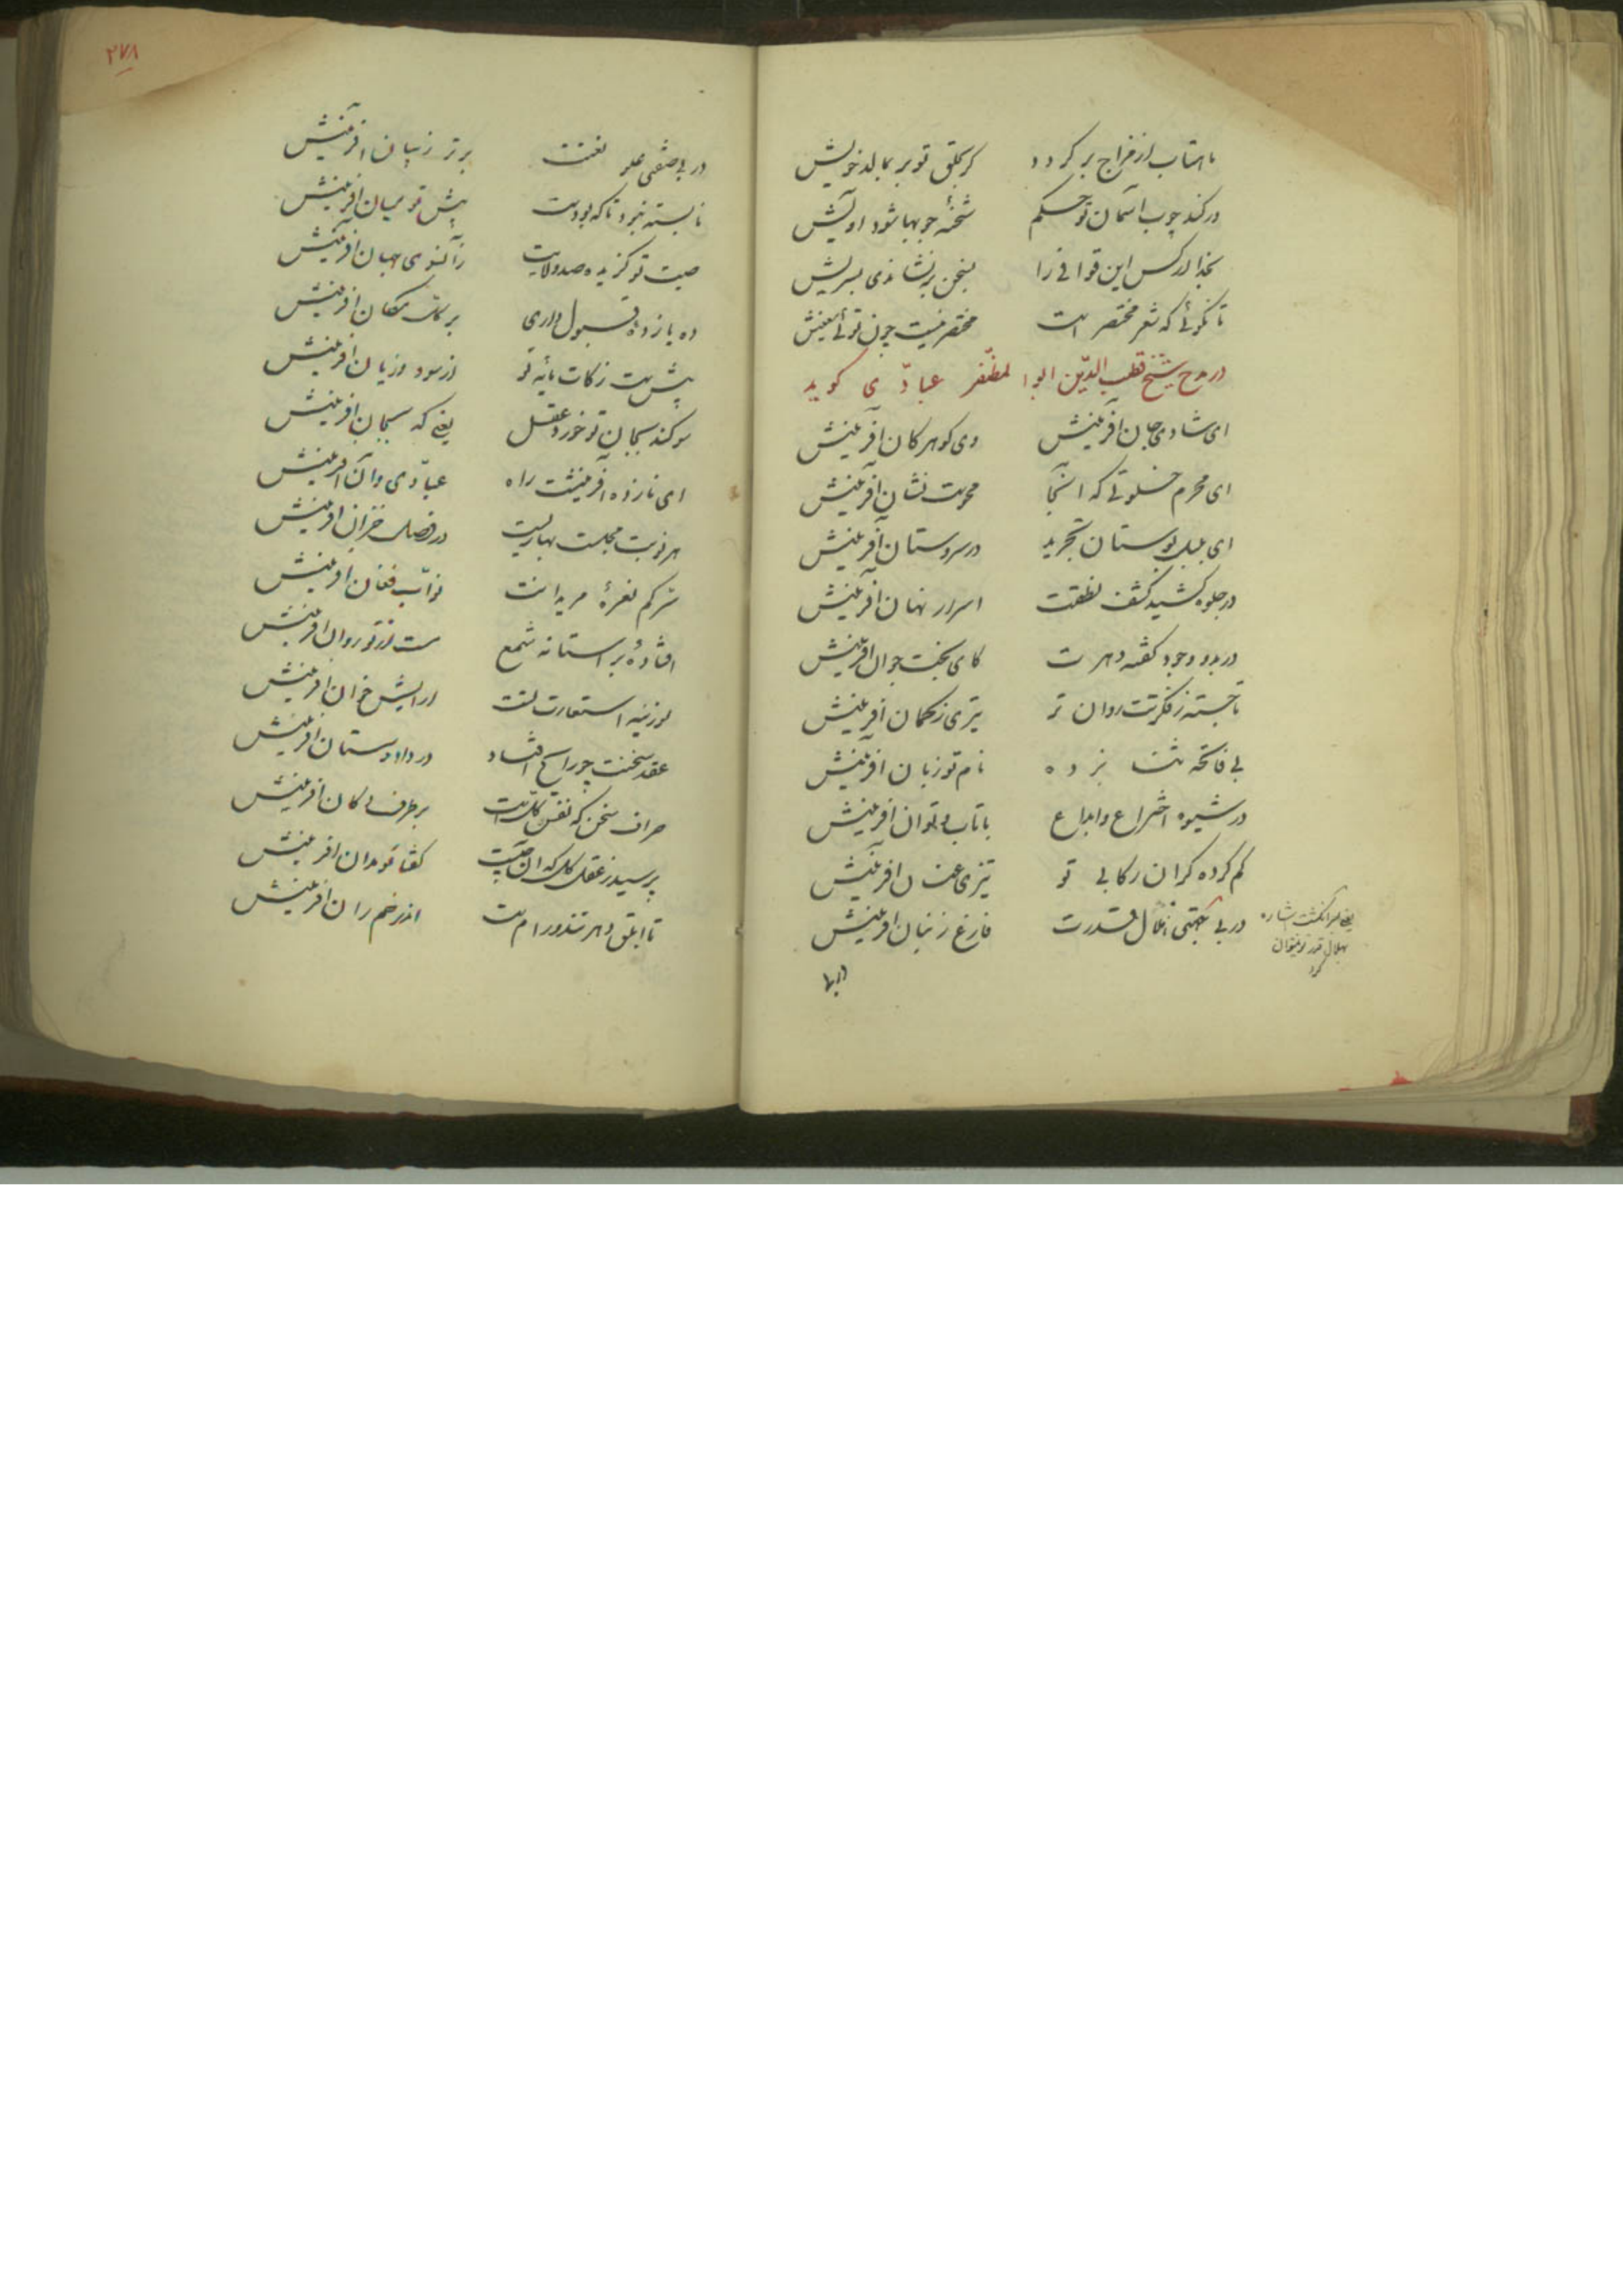 ماهتاب از مزاج بر کردد کر بخلق تو بر بمالد خویش
در کند چوب آسمان تو حکم شحنهٔ چوبها شود او آیش
بخدا ار کس این قوافی را بسخن بر نشاندی بسریش
تا نکوئی که شعر مختصر است مختصر نیست چون توئی معنیش
در مدح شیخ قطب الدّین ابوا لمظفّر عبادّی کوید
ای شادی جان آفرینش وی کوهر کان آفرینش
ای محرم خلوتی که انجا محویت نشان آفرینش
ای بلبل بوستان تجرید در سروستان آفرینش
در جلوه کشید کشف نطقت اسرار نهان آفرینش
در بدو وجود کفته دهرت کای بخت جوان افرینش
ناجسته ز فکرتت روان تر تیری ز کمان افرینش
بی فاتحه ثنت نبرده نام تو زبان افرینش
در شیوه اختراع وابداع با تاب و توان افرینش
کم کرده کران رکابی تو تیزی عنان افرینش
در بی جهتی قدرت فارغ ز افرینش
یعنی سر انکشت اشاره
بهلال قدر تو نتوان
کرد
۲۷۸
در بی صفتی علو نعتت برتر ز بیان افرینش
نابسته نبرد تا که بودست پیش تو میان افرینش
صیت تو کزیده صد ولایت زانسوی جهان افرینش
ده یازدهٔ قبول داری بر مکان افرینش
پیش است زکات مایهٔ تو از سود وزیان افرینش
سوکند بجان تو خورد عقل یعنی که بجان افرینش
ای نازده آفرینشت راه عبّادی وآن افرینش
هر نوبت مجلست بهاریست در فصل خزان افرینش
شد کم نعرهٔ مریدانت فغان افرینش
افتادهٔ بر استانه شمع ست از تو روان افرینش
لوزینه استعارت تست ارایش خوان افرینش
عقد سخنت چو رایج افتاد در داد وستان افرینش
صراف سخن که نفس کلّ است بر طرف دکان افرینش
پرسید ز عقل کل که ان چیست کفتا افرینش
تا ابلق دهر تند ورام است اندر خم ران افرینش